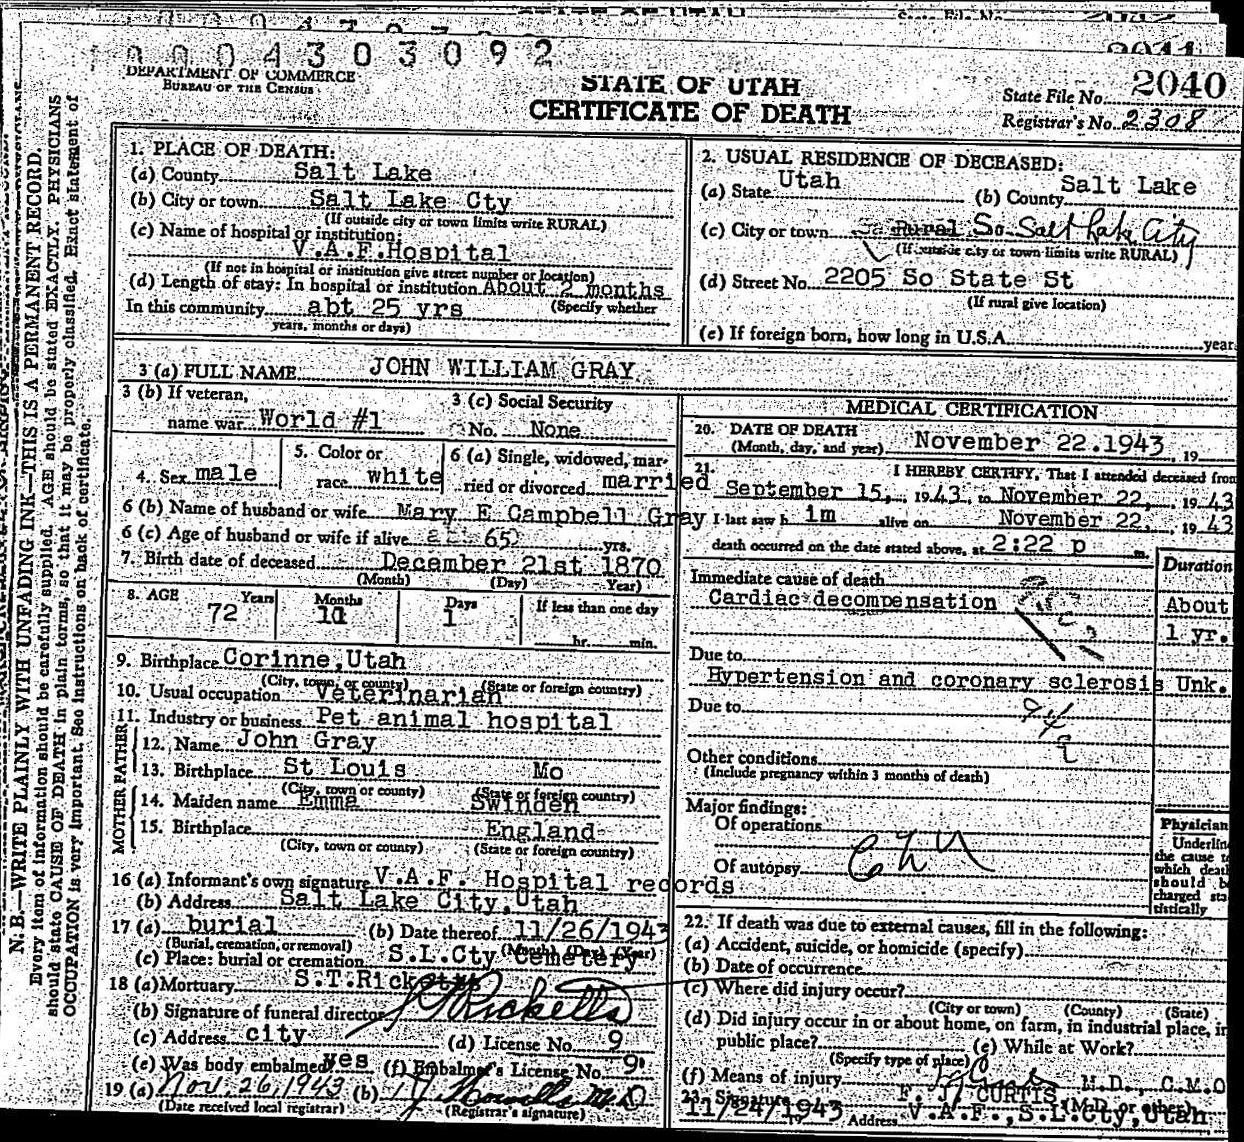 0004303092
DEPARTMENT OF COMMERCE
BUREAU OF THE CENSUS
STATE OF UTAH
CERTIFICATE OF DEATH
State File No. 2040
Registrar's No. 2308
N. B.—WRITE PLAINLY WITH UNFADING INK—THIS IS A PERMANENT RECORD.
Every item of information should be carefully supplied. AGE should be stated EXACTLY. PHYSICIANS
should state CAUSE OF DEATH in plain terms, so that it may be properly classified. Exact statement of
OCCUPATION is very important. See instructions on back of certificate.
1. PLACE OF DEATH:
(a) County Salt Lake
(b) City or town Salt Lake Cty
(If outside city or town limits write RURAL)
(c) Name of hospital or institution:
V.A.F. Hospital
(If not in hospital or institution give street number or location)
(d) Length of stay: In hospital or institution About 2 months
In this community abt 25 yrs (Specify whether
years, months or days)
2. USUAL RESIDENCE OF DECEASED:
(a) State Utah (b) County Salt Lake
(c) City or town Rural So. Salt Lake City
(If outside city or town limits write RURAL)
(d) Street No. 2205 So State St
(If rural give location)
(e) If foreign born, how long in U.S.A. year
3 (a) FULL NAME JOHN WILLIAM GRAY
3 (b) If veteran,
name war World #1
3 (c) Social Security
No. None
4. Sex male
5. Color or
race white
6 (a) Single, widowed, mar-
ried or divorced married
6 (b) Name of husband or wife Mary E Campbell Gray
6 (c) Age of husband or wife if alive abt 65 yrs.
7. Birth date of deceased December 21st 1870
(Month) (Day) Year)
8. AGE Years Months Days If less than one day
72 1
hr. min.
9. Birthplace Corinne, Utah
(City, town, or county) (State or foreign country)
10. Usual occupation Veterinarian
11. Industry or business Pet animal hospital
FATHER
12. Name John Gray
13. Birthplace St Louis Mo
(City, town or county) (State or foreign country)
MOTHER
14. Maiden name Emma Swinden
15. Birthplace England
(City, town or county) (State or foreign country)
16 (a) Informant's own signature V.A.F. Hospital records
(b) Address Salt Lake City, Utah
17 (a) burial (b) Date thereof 11/26/1943
(Burial, cremation, or removal) (Month) (Day) (Year)
(c) Place: burial or cremation S.L.Cty Cemetery
18 (a) Mortuary S.T.Ricketts
(b) Signature of funeral director Ricketts
(c) Address city (d) License No. 9
(e) Was body embalmed? yes (f) Embalmer's License No. 9
19 (a) Nov. 26, 1943 (b) M.D
(Date received local registrar) (Registrar's signature)
MEDICAL CERTIFICATION
20. DATE OF DEATH
(Month, day, and year) November 22. 1943, 19
21. I HEREBY CERTIFY, That I attended deceased from
September 15, 1943, to November 22, 1943
I last saw h im alive on November 22, 1943
death occurred on the date stated above, at 2:22 p m.
Duration
Immediate cause of death
Cardiac decompensation About
1 yr.
Due to
Hypertension and coronary sclerosis Unk.
Due to
94
Other conditions
(Include pregnancy within 3 months of death)
Major findings:
Of operations
Of autopsy
Physician
Underline
the cause to
which death
should be
charged sta-
tistically
22. If death was due to external causes, fill in the following:
(a) Accident, suicide, or homicide (specify)
(b) Date of occurrence
(c) Where did injury occur?
(City or town) (County) (State)
(d) Did injury occur in or about home, on farm, in industrial place, in
public place? (e) While at Work?
(Specify type of place)
(f) Means of injury M.D., C.M.O
23. Signature F. J. CURTIS (M.D. or other)
11/24/1943 Address V.A.F., S.L.Cty, Utah